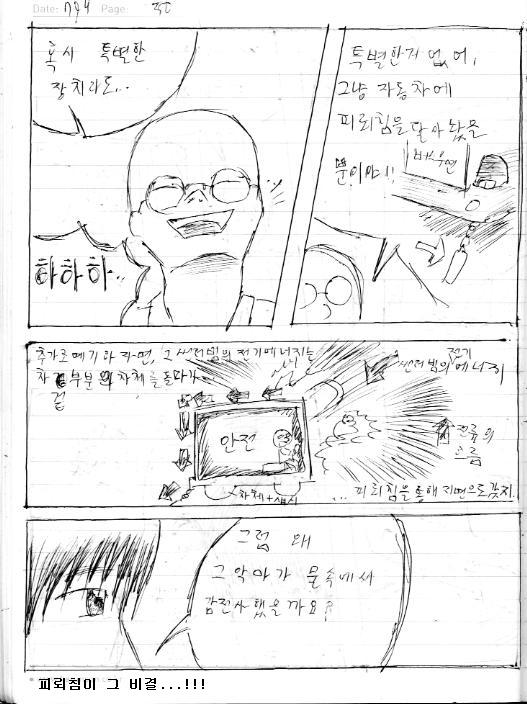 Date: Page: 30
혹시 특별한
장치라도..
하하하..
특별한거 없어,
그냥 자동차에
피뢰침을 달아 놨을
뿐이야!!
추가로 얘기하자면, 그 썬더빔의 전기에너지는
차 겉부분의 차체를 돌다가
전기
썬더빔의 에너지
안전
전류의
흐름
차체+섀시
...피뢰침을 통해 지면으로 갔지..
그럼 왜
그 악마가 물속에서
감전사했을까요?
피뢰침이 그 비결...!!!